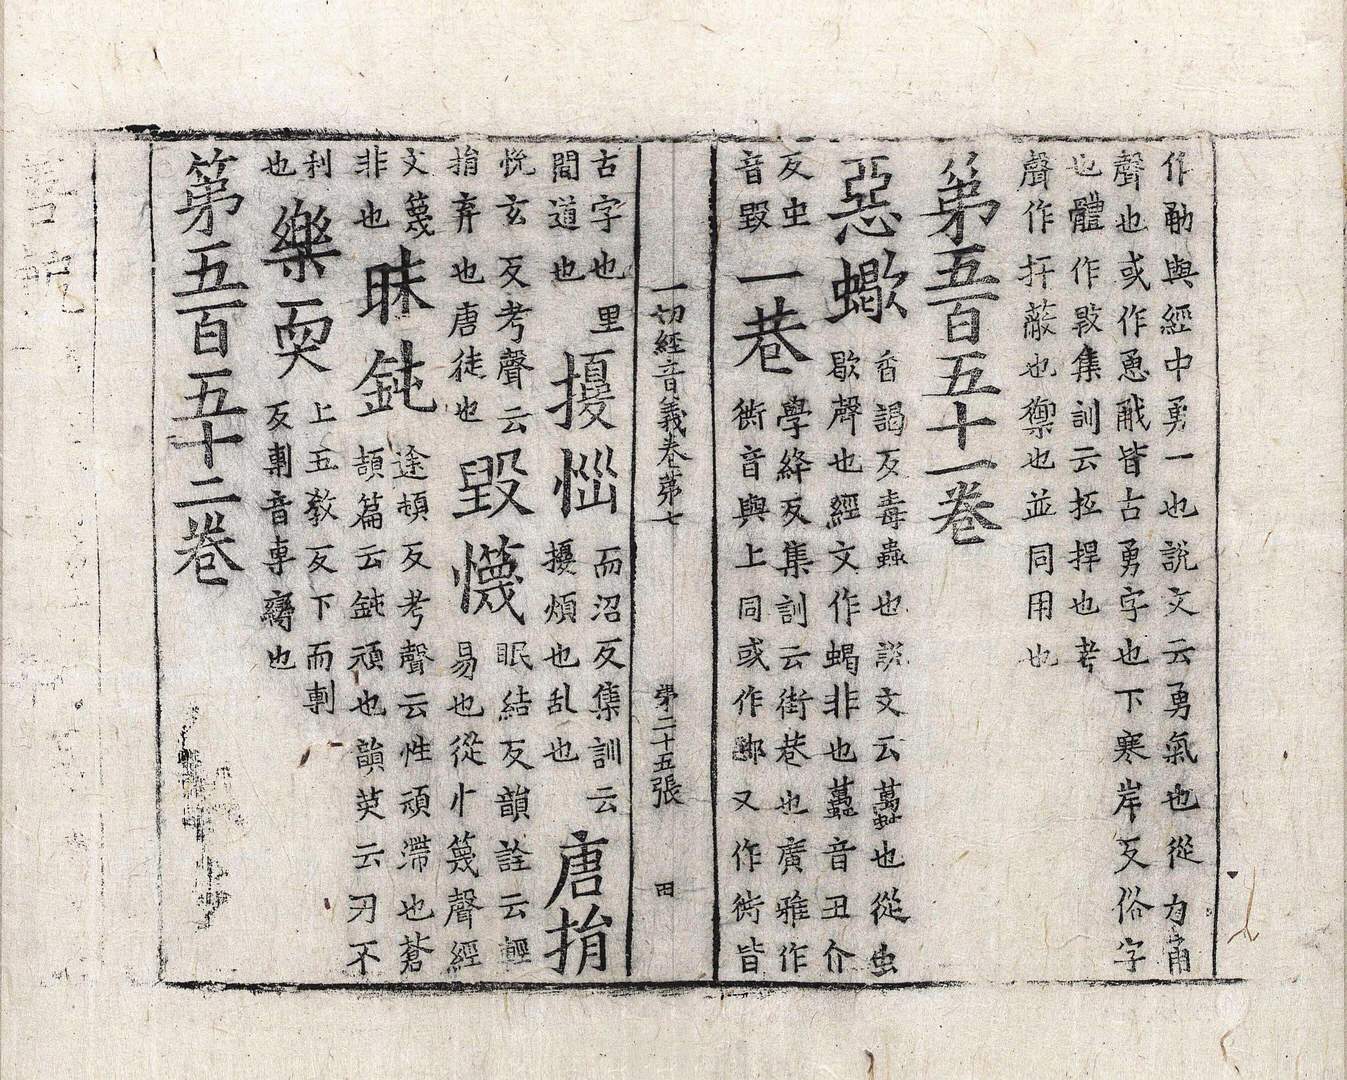 作勈與經中勇一也說文云勇氣也從力甬
聲也或作恿皆古勇字也下寒岸反俗字
也體作集訓云扞捍也考
聲作扞蔽也禦也並同用也
第五百五十一卷
惡蠍
香謁反毒蟲也說文云蠆也從虫
歇聲也經文作蝎非也蠆音丑介
反虫
音毀
一巷
學絳反集訓云街巷也廣雅作
衖音與上同或作又作衖皆
一切經音義卷第七 第二十五張 田
古字也里
間道也
擾惱
而沼反集訓云
擾煩也乱也
唐捐
悅玄反考聲云
捐弃也唐徒也
毀懱
眠結反韻詮云輕
易也從忄篾聲經
文篾
非也
昧鈍
途頓反考聲云性頑滯也蒼
頡篇云鈍頑也韻英云刃不
利
也
樂耎
上五教反下而剸
反剸音專臠也
第五百五十二卷